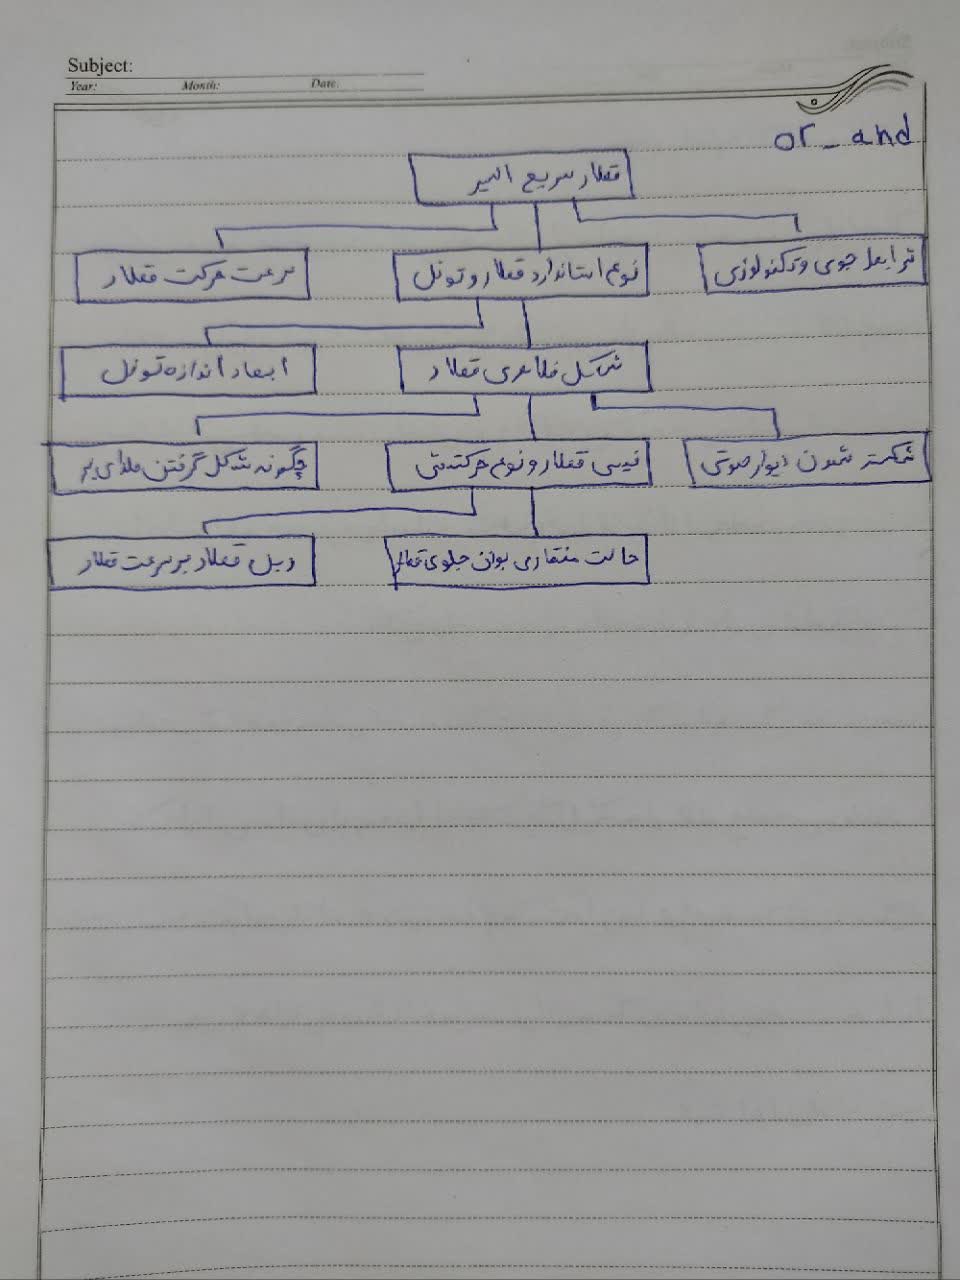 Subject:
Year: Month: Date:
or_and
قطار سریع السیر
شرایط جوی و تکنولوژی
نوع استاندارد قطار و تونل
سرعت حرکت قطار
شکل ظاهری قطار
ابعاد اندازه تونل
شکسته شدن دیوار صوتی
قطار و نوع حرکتش
چگونه شکل گرفتن
حالت منقاری بودن جلوی قطار
ریل قطار بر سرعت قطار